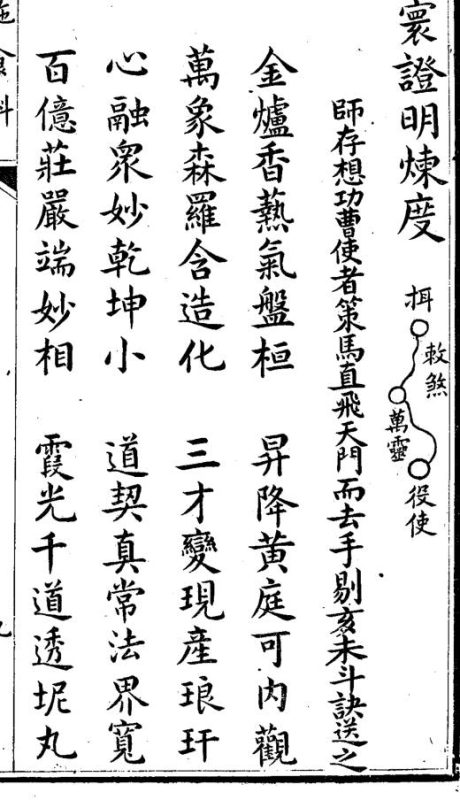 寰證明煉度
挕
敕煞
萬靈
役使
師存想功曹使者策馬直飛天門而去手剔亥未斗訣送之
金爐香爇氣盤桓 昇降黃庭可內觀
萬象森羅含造化 三才變現產琅玕
心融眾妙乾坤小 道契真常法界寬
百億莊嚴端妙相 霞光千道透坭丸
食科